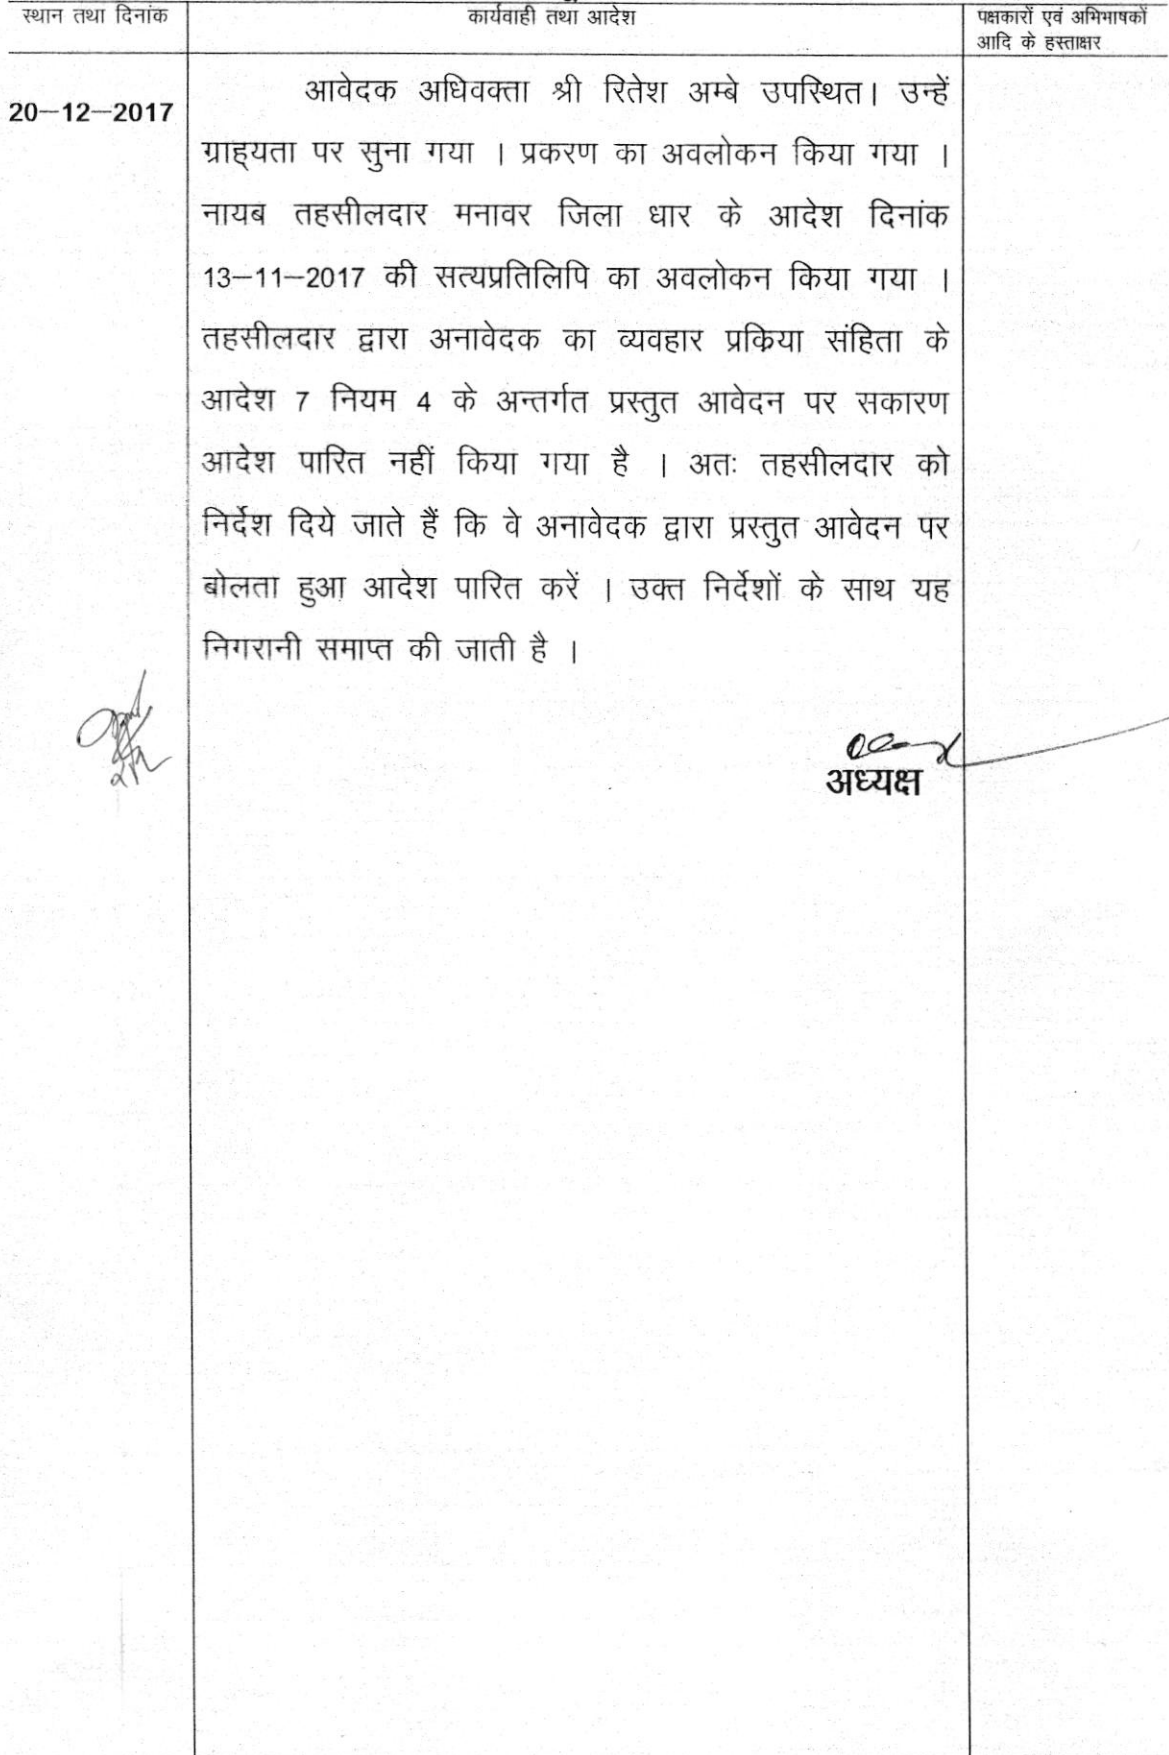 स्थान तथा दिनांक
कार्यवाही तथा आदेश
पक्षकारों एवं अभिभाषकों
आदि के हस्ताक्षर
20–12–2017
आवेदक अधिवक्ता श्री रितेश अम्बे उपस्थित। उन्हें
ग्राह्यता पर सुना गया । प्रकरण का अवलोकन किया गया ।
नायब तहसीलदार मनावर जिला धार के आदेश दिनांक
13–11–2017 की सत्यप्रतिलिपि का अवलोकन किया गया ।
तहसीलदार द्वारा अनावेदक का व्यवहार प्रकिया संहिता के
आदेश 7 नियम 4 के अन्तर्गत प्रस्तुत आवेदन पर सकारण
आदेश पारित नहीं किया गया है । अतः तहसीलदार को
निर्देश दिये जाते हैं कि वे अनावेदक द्वारा प्रस्तुत आवेदन पर
बोलता हुआ आदेश पारित करें । उक्त निर्देशों के साथ यह
निगरानी समाप्त की जाती है ।
अध्यक्ष